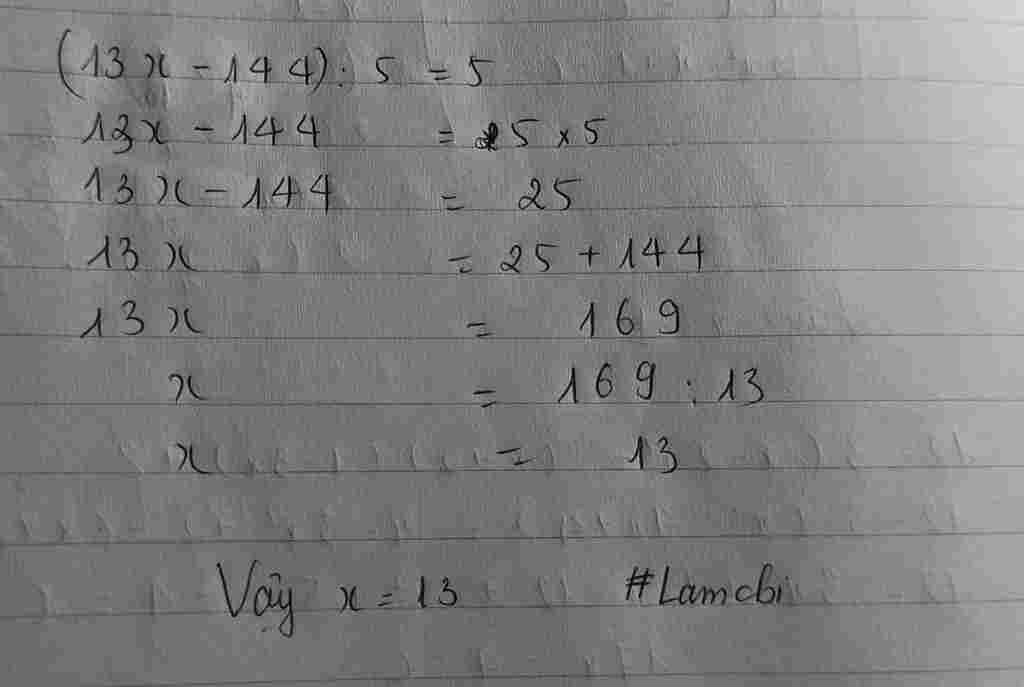 (13x - 144) : 5 = 5
13x - 144 = 5 x 5
13x - 144 = 25
13x = 25 + 144
13x = 169
x = 169 : 13
x = 13
Vậy x = 13 #Lamcbi